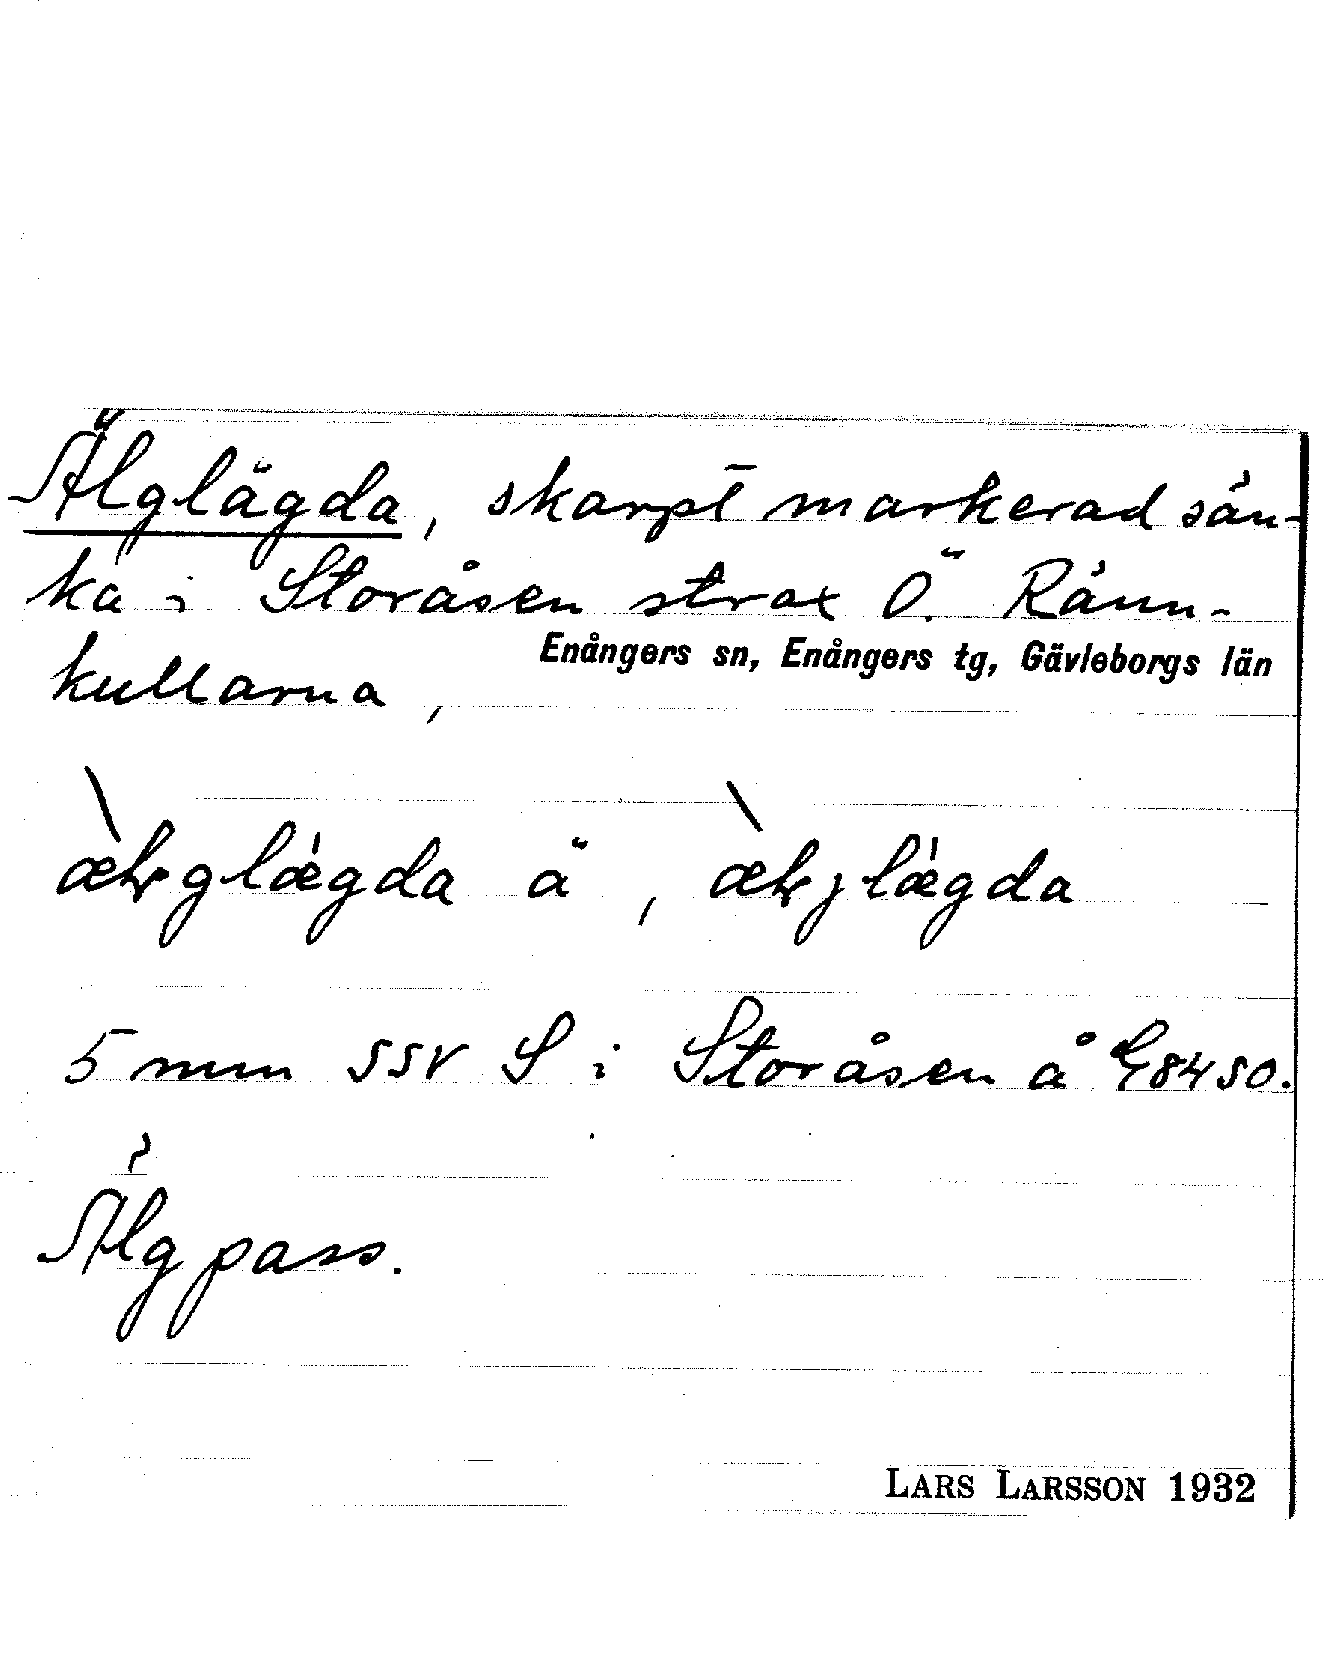 Älglägda, skarpt markerad sän-
ka i Storåsen strax Ö. Ränn-
kullarna,
Enångers sn, Enångers tg, Gävleborgs län
glægda ä, lægda
5 mm SSV S i Storåsen å 84 SO.
Älgpass.
LARS LARSSON 1932